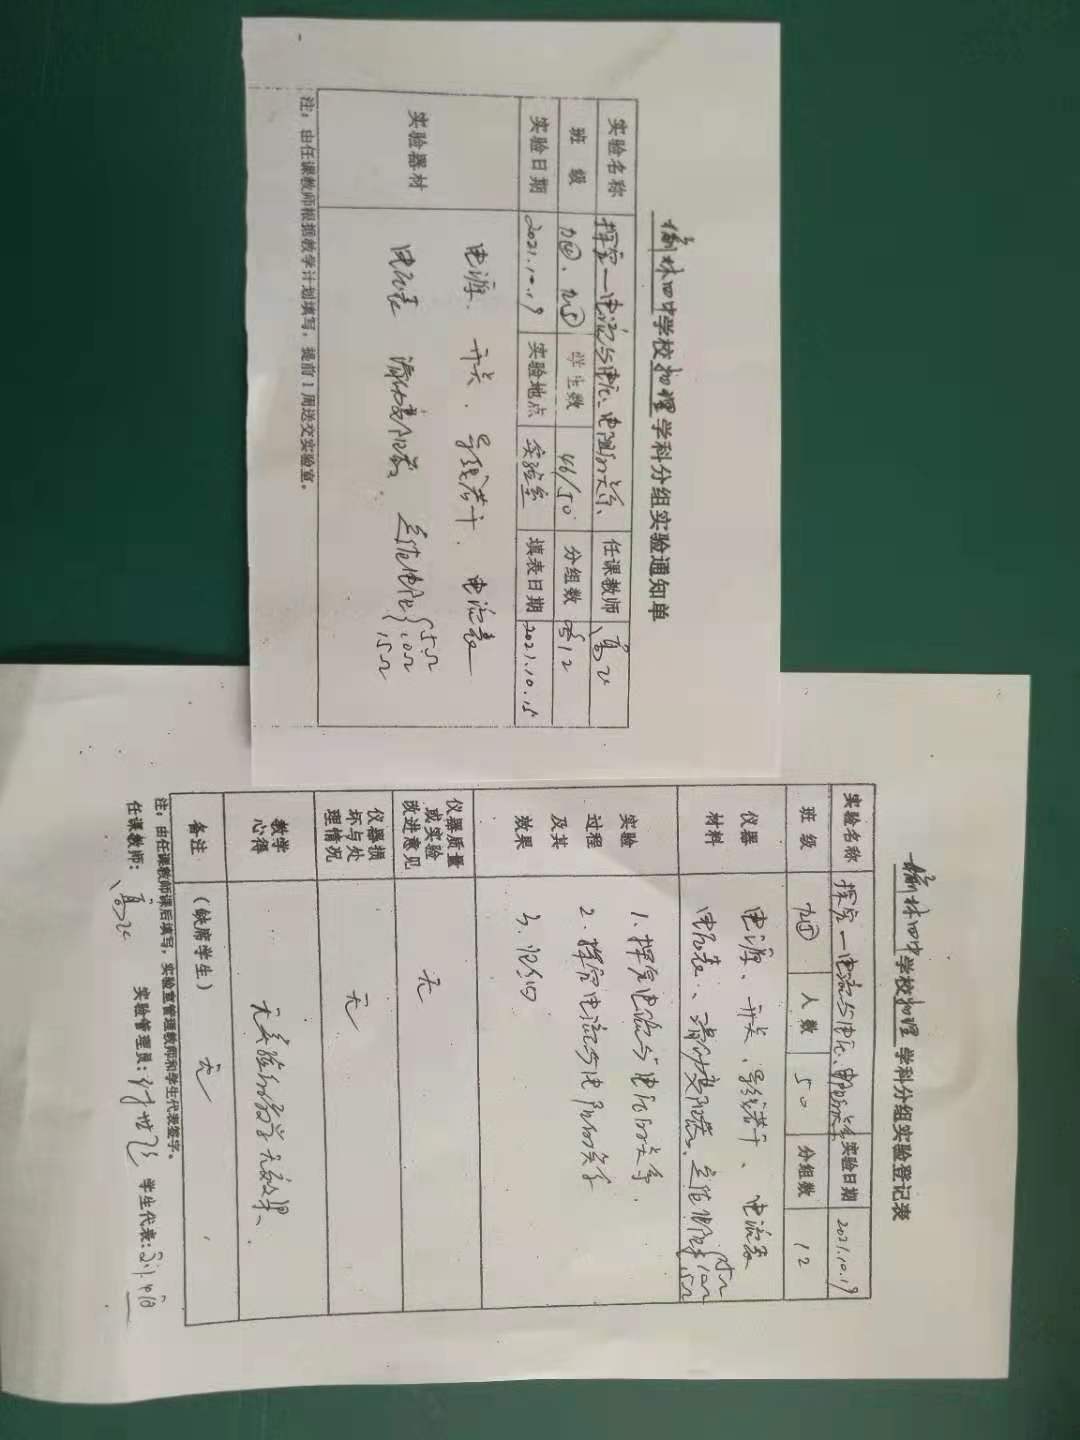 榆林四中学校物理学科分组实验通知单
实验名称 探究—电流与电压、电阻的关系 任课教师
班 级 九④、九⑤ 学生数 46/50 分组数 各12
实验日期 2021.10.19 实验地点 实验室 填表日期 2021.10.15
实验器材
电源、开关、导线若干、电流表
电压表 滑动变阻器、定值电阻 5Ω 10Ω 15Ω
注：由任课教师根据教学计划填写，提前1周送交实验室。
榆林四中学校物理学科分组实验登记表
实验名称 探究—电流与电压、电阻的关系 实验日期 2021.10.19
班 级 九④ 人 数 50 分组数 12
仪器材料
电源、开关、导线若干、电流表
电压表、滑动变阻器、定值电阻 5Ω 10Ω 15Ω
实验过程及其效果
1. 探究电流与电压的关系
2. 探究电流与电阻的关系
3. 归纳
仪器质量或实验改进意见 无
仪器损坏与处理情况 无
教学心得
备注 （缺席学生） 无
注：由任课教师课后填写，实验室管理教师和学生代表签字。
任课教师： 实验管理员： 学生代表：